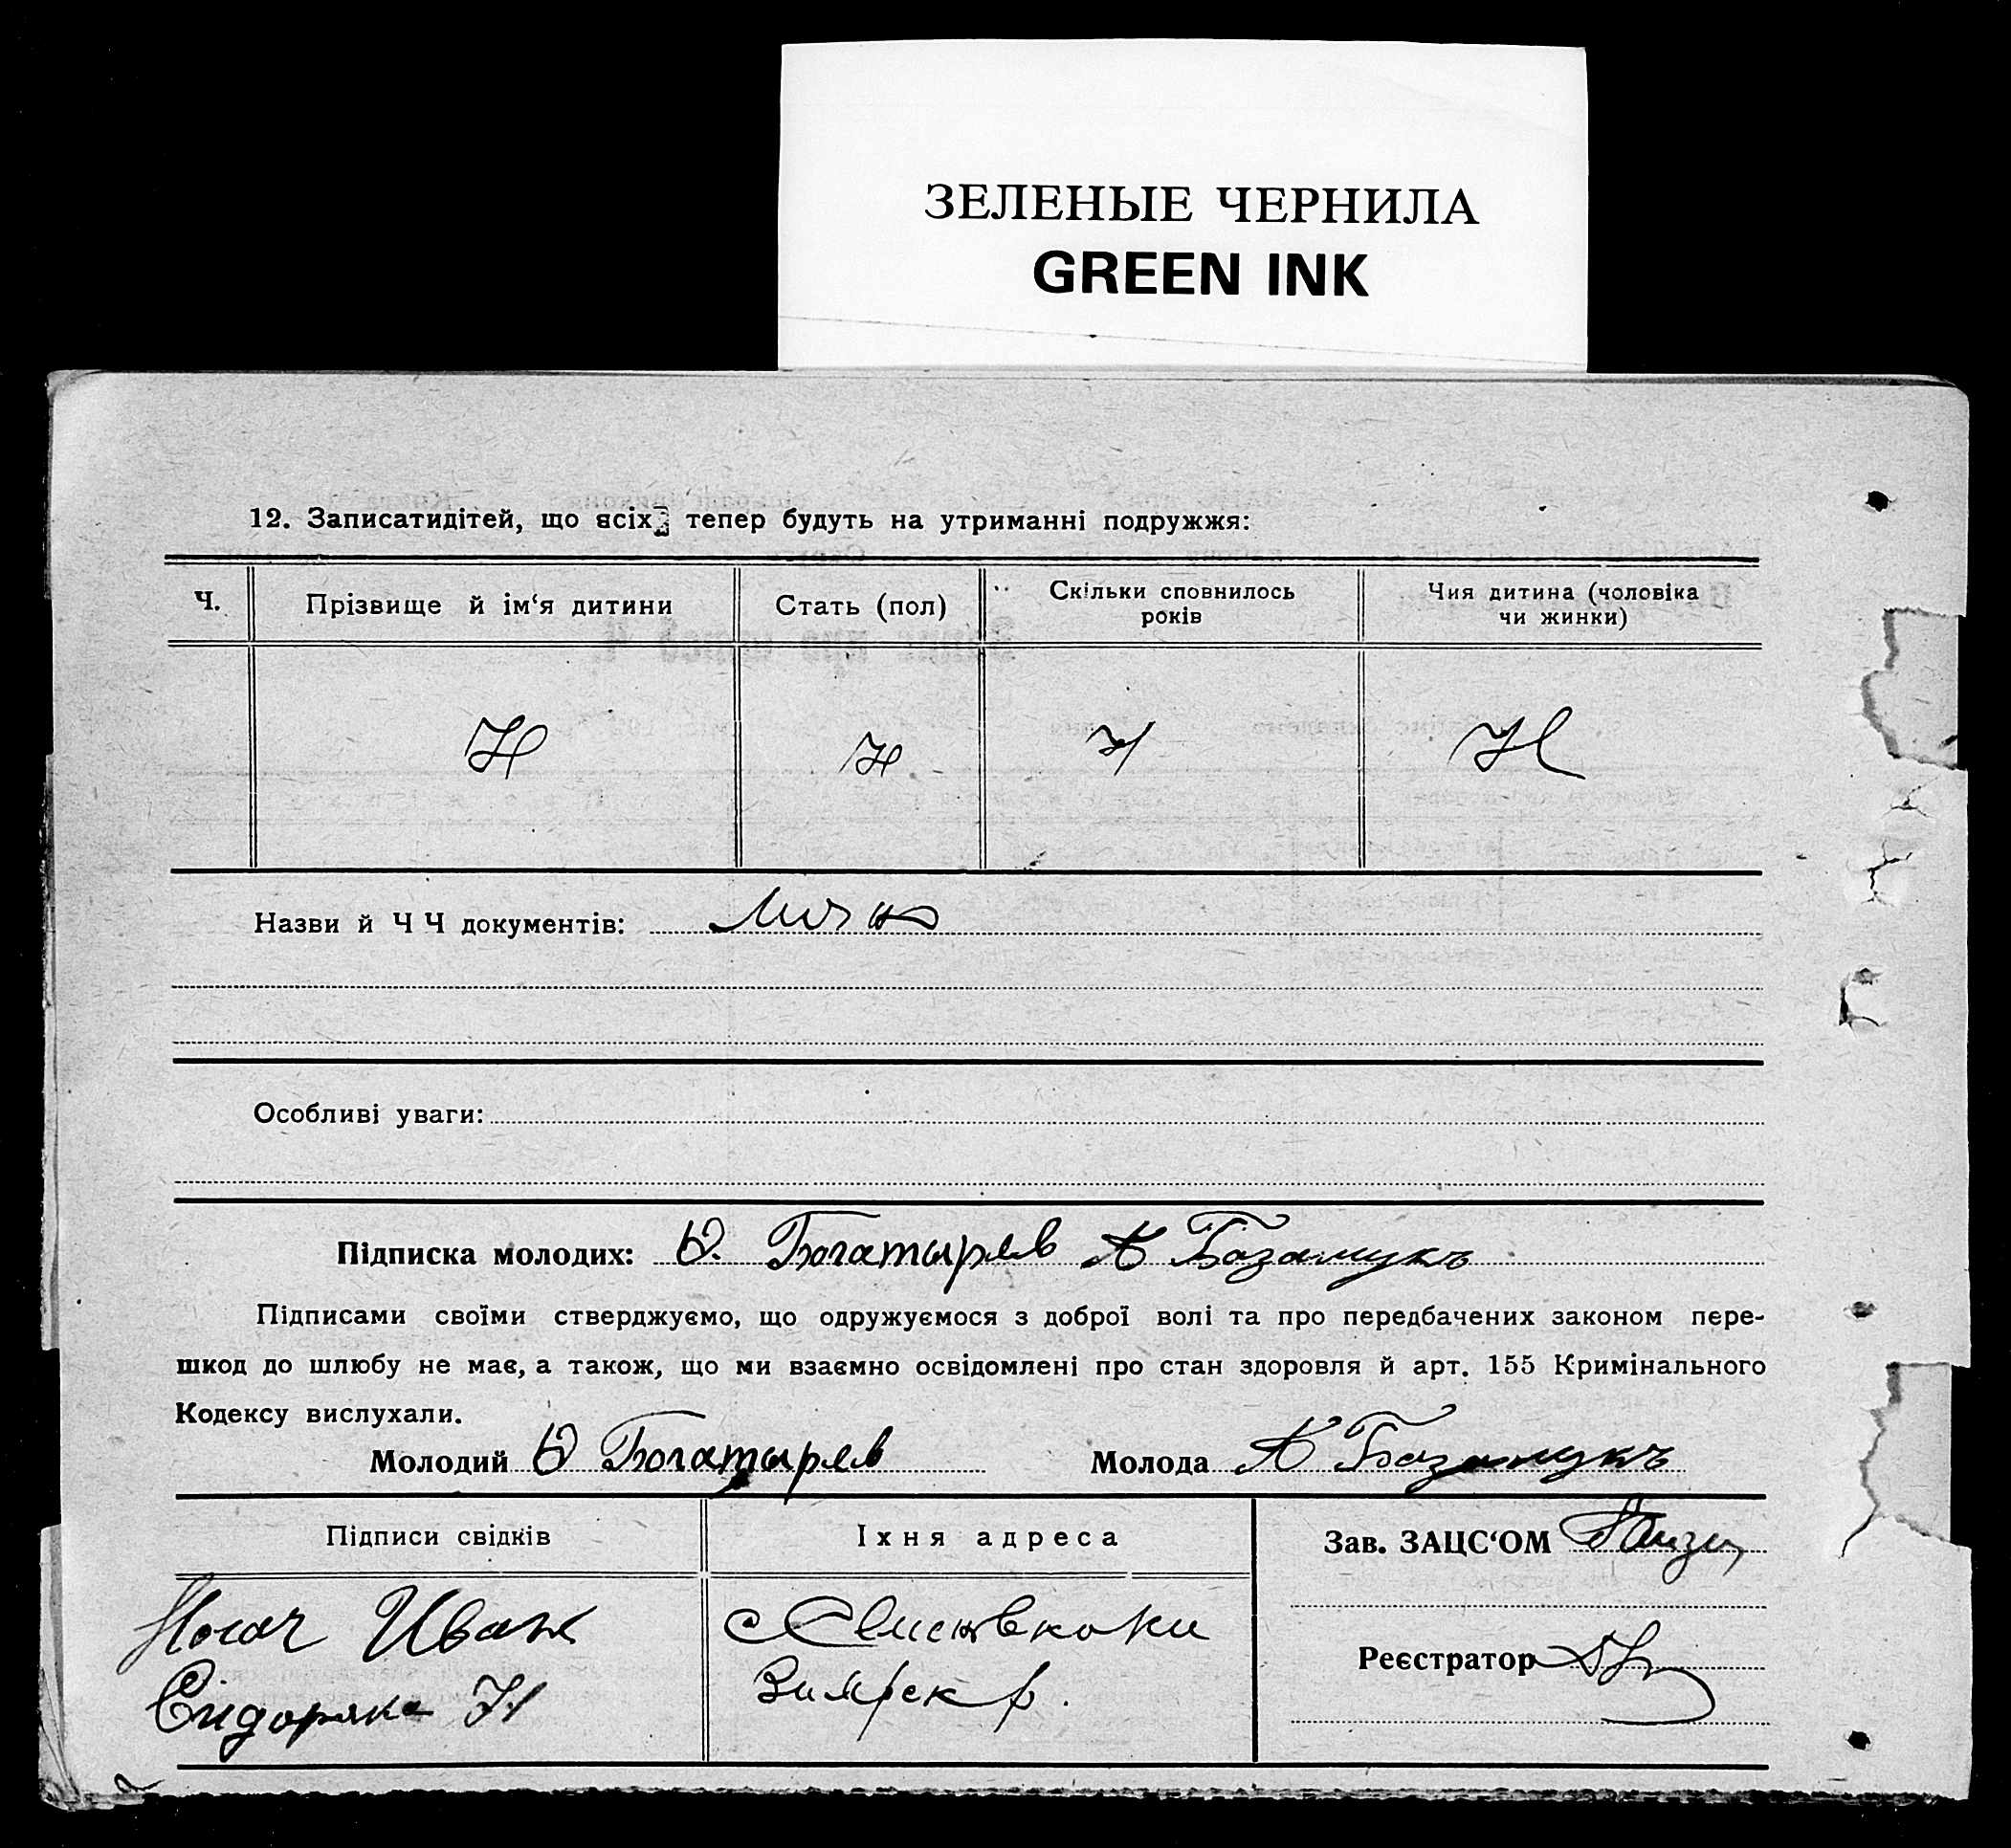 ЗЕЛЕНЫЕ ЧЕРНИЛА
GREEN INK
12. Записатидітей, що всіх тепер будуть на утриманні подружжя:
Ч. Прізвище й ім‘я дитини Стать (пол) Скільки сповнилось років Чия дитина (чоловіка чи жинки)
Н Н Н Н
Назви й Ч Ч документів:
Особливі уваги:
Підписка молодих: Ю. Богатырев А Базамукъ
Підписами своїми стверджуємо, що одружуємося з доброї волі та про передбачених законом пере-
шкод до шлюбу не має, а також, що ми взаємно освідомлені про стан здоровля й арт. 155 Кримінального
Кодексу вислухали.
Молодий Ю Богатырев Молода А Базамукъ
Підписи свідків Їхня адреса Зав. ЗАЦС‘ОМ
Носач Иван
Реєстратор
Сидоряка Н